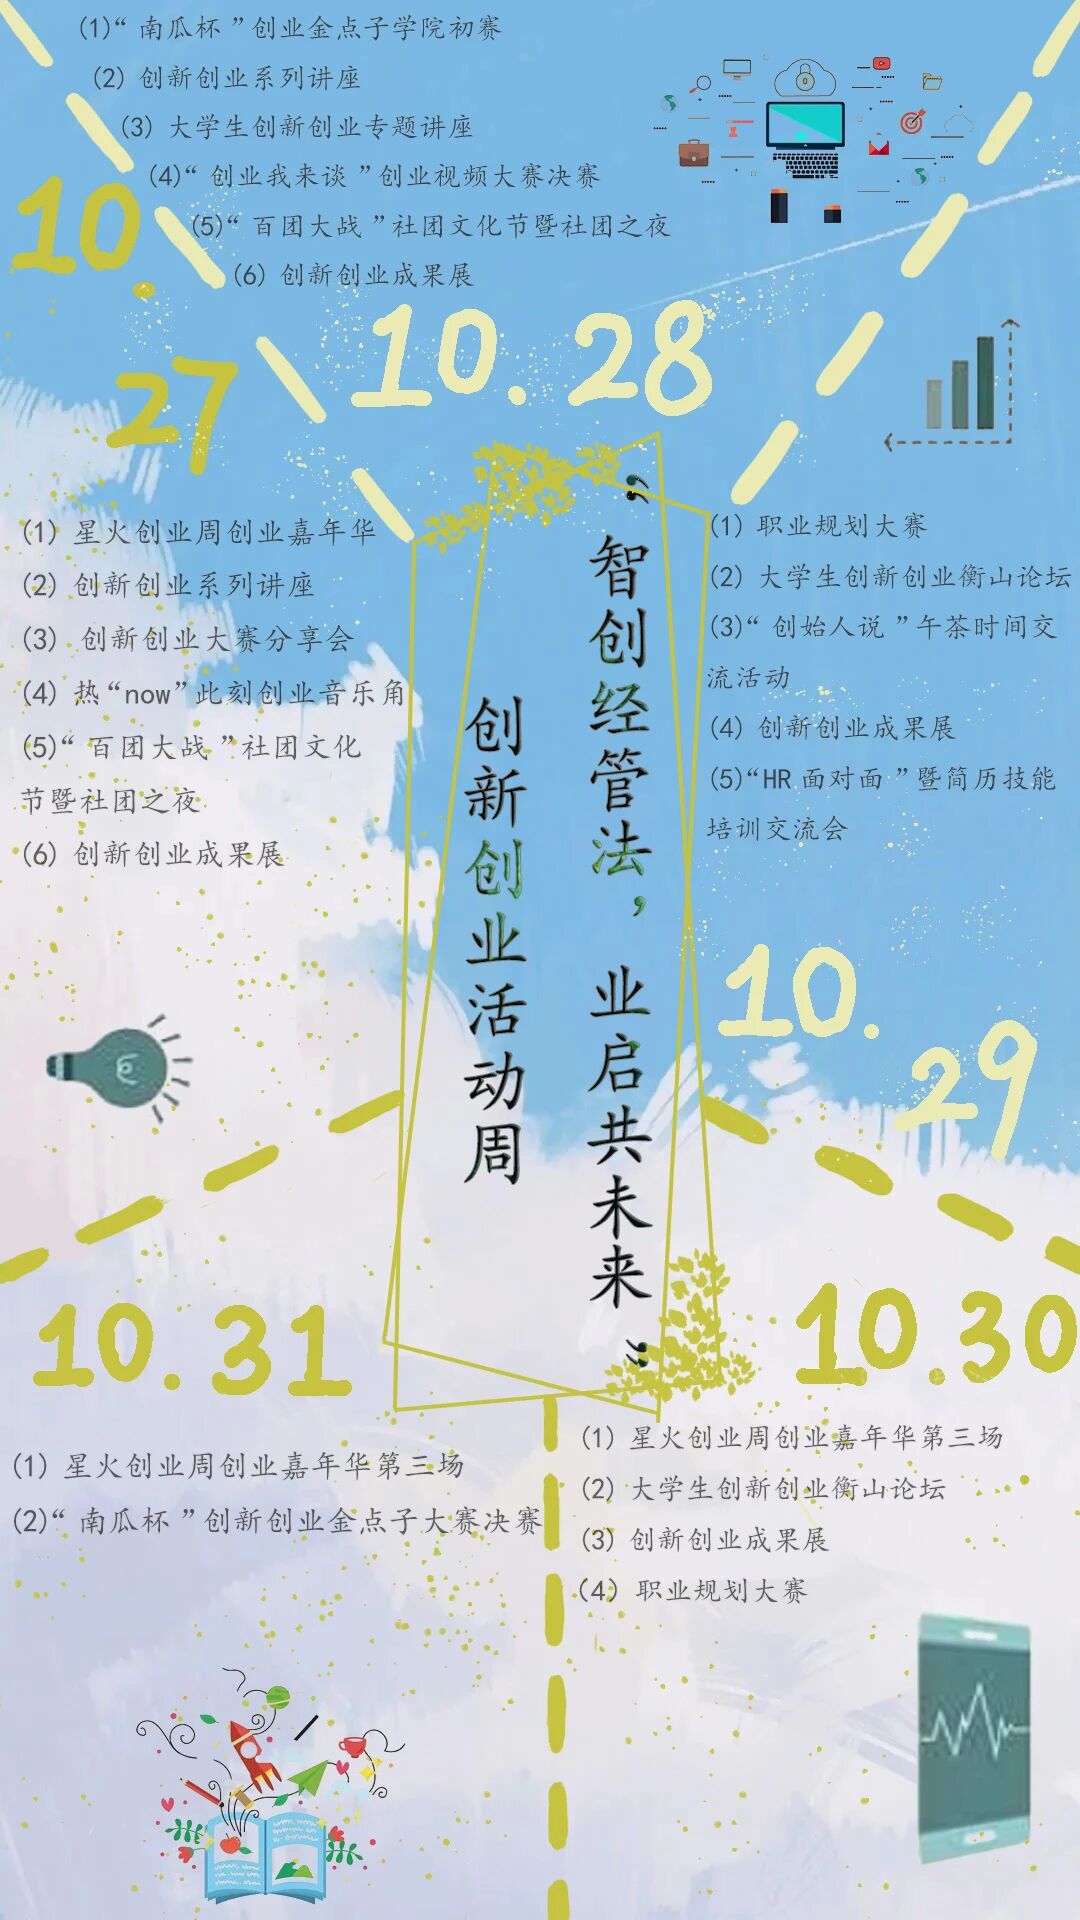 (1)“南瓜杯”创业金点子学院初赛
(2) 创新创业系列讲座
(3) 大学生创新创业专题讲座
(4)“创业我来谈”创业视频大赛决赛
(5)“百团大战”社团文化节暨社团之夜
(6) 创新创业成果展
10.28
10.
27
(1) 星火创业周创业嘉年华
(2) 创新创业系列讲座
(3) 创新创业大赛分享会
(4) 热“now”此刻创业音乐角
(5)“百团大战”社团文化
节暨社团之夜
(6) 创新创业成果展
“智创经管法，业启共未来”
创新创业活动周
(1) 职业规划大赛
(2) 大学生创新创业衡山论坛
(3)“创始人说”午茶时间交
流活动
(4) 创新创业成果展
(5)“HR面对面”暨简历技能
培训交流会
10.
29
10.31
(1) 星火创业周创业嘉年华第三场
(2)“南瓜杯”创新创业金点子大赛决赛
10.30
(1) 星火创业周创业嘉年华第三场
(2) 大学生创新创业衡山论坛
(3) 创新创业成果展
(4) 职业规划大赛